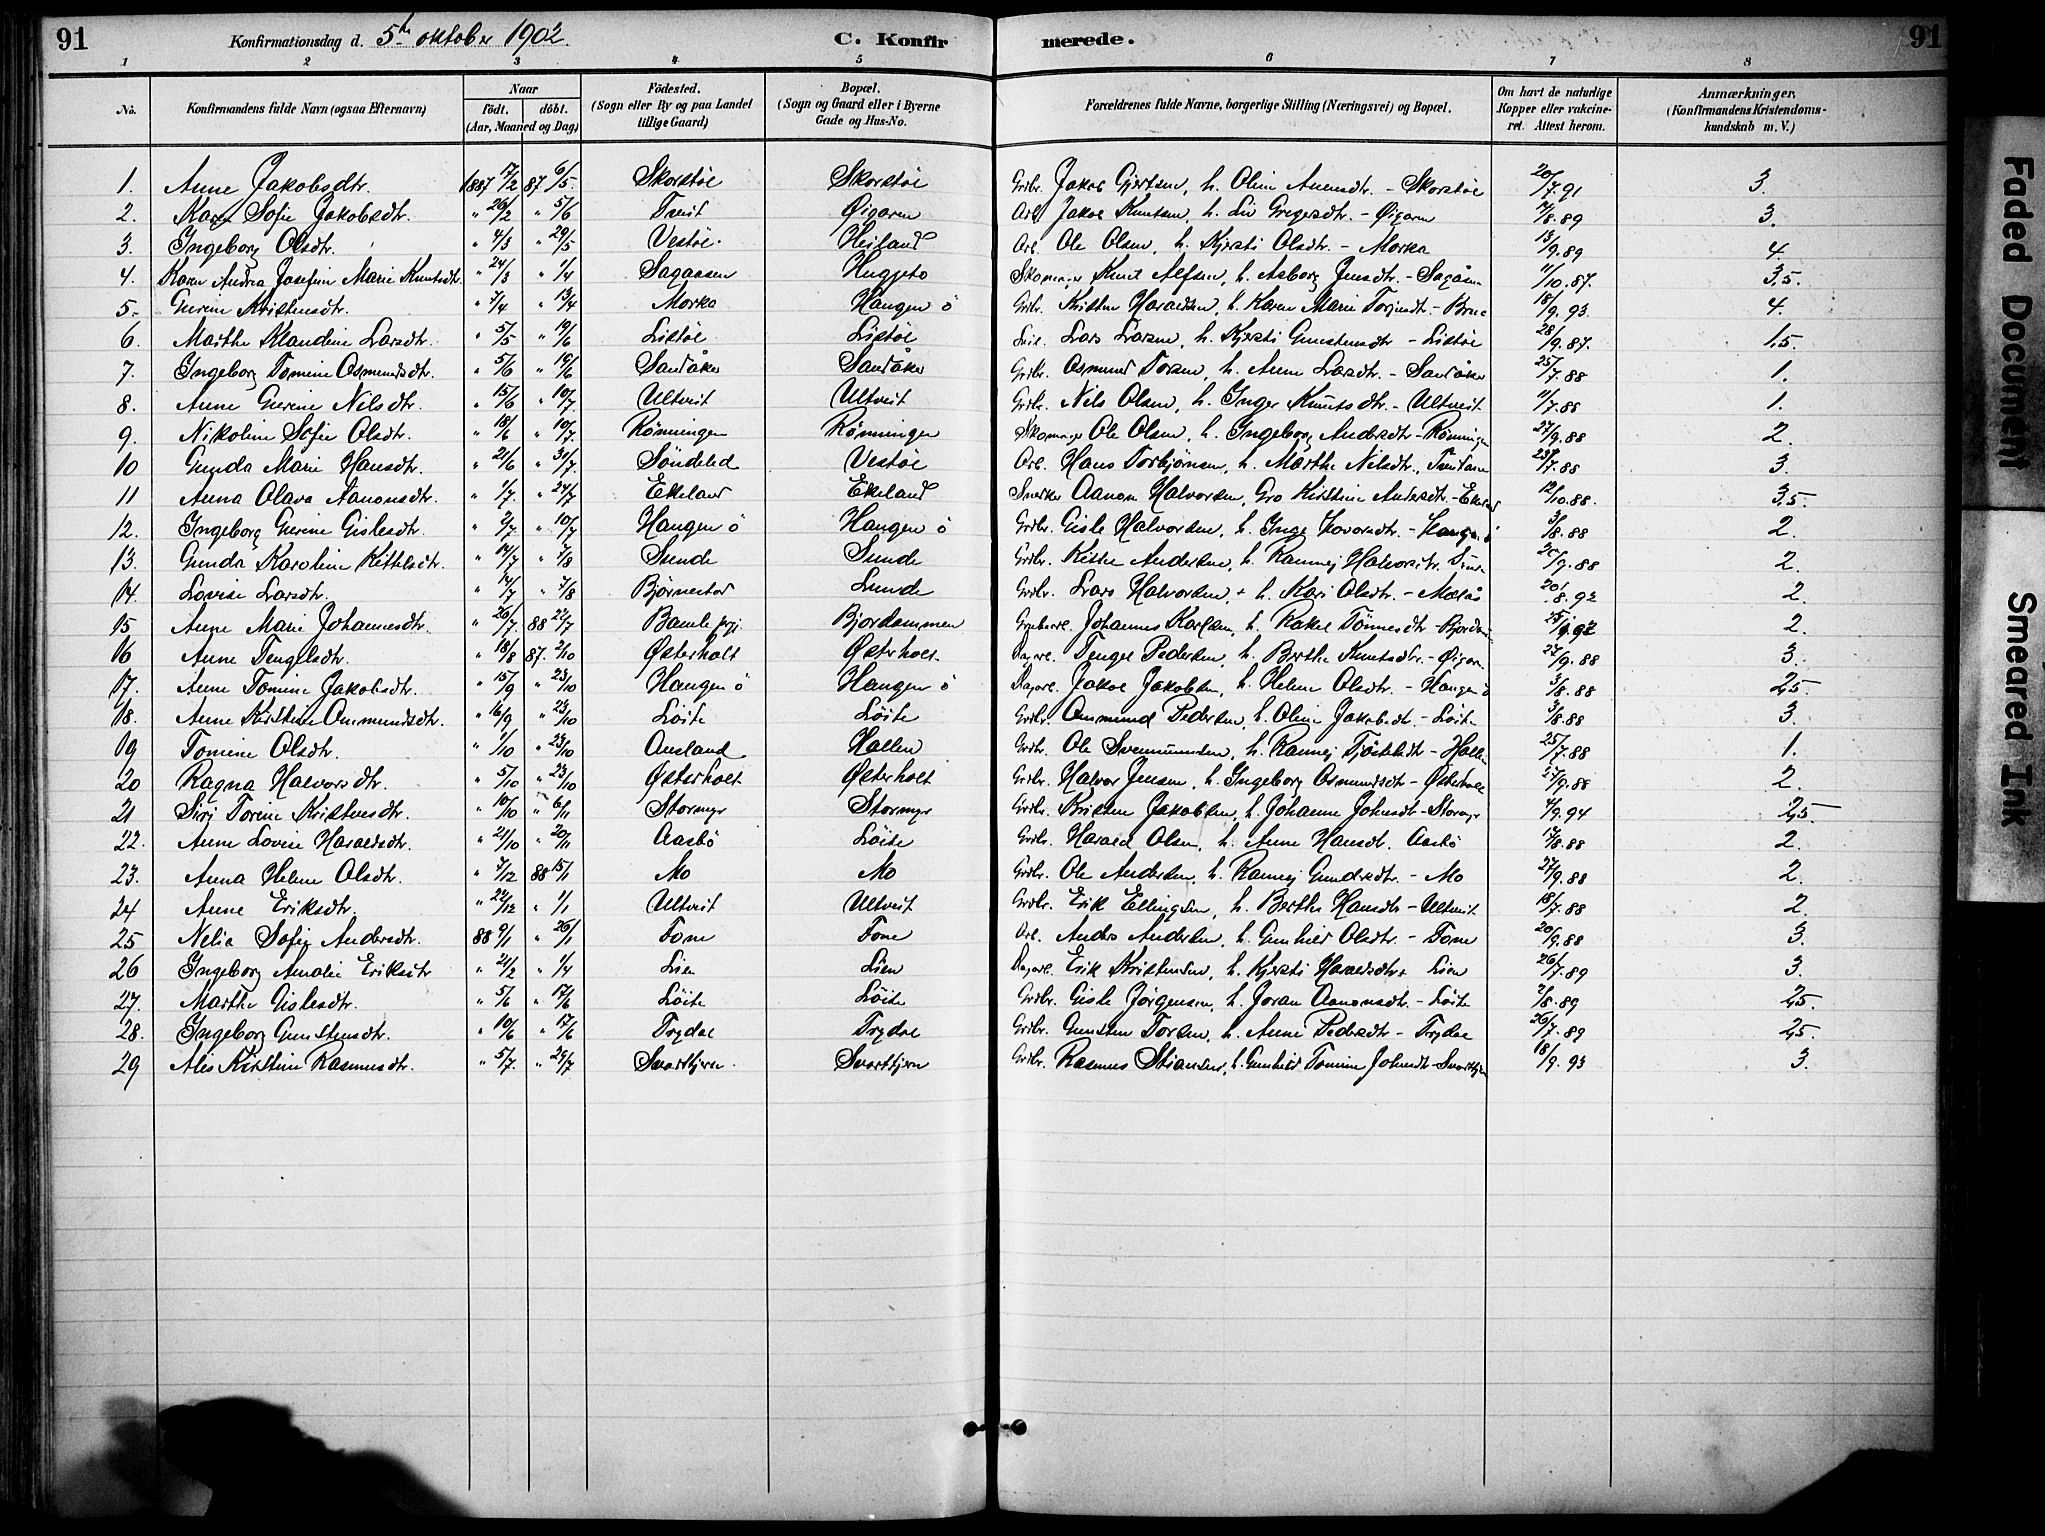 91 Konfirmationsdag d. 5te oktober 1902. C. Konfirmerede. 91
1 2 3 4 5 6 7 8
No. Konfirmandens fulde Navn (ogsaa Efternavn) Naar født. døbt. (Aar, Maaned og Dag) Fødested. (Sogn eller By og paa Landet tillige Gaard) Bopæl. (Sogn og Gaard eller i Byerne Gade og Hus-No. Forældrenes fulde Navne, borgerlige Stilling (Næringsvei) og Bopæl. Om havt de naturlige Kopper eller vakcineret. Attest herom. Anmærkninger. (Konfirmandens Kristendomskundskab m. V.)
1. Anne Jakobsdtr. 1887 17/2 87 6/5. Skorstøl Skorstøl Grdbr. Jakob Gjertsen, h. Oline Anensdtr. - Skorstøl 20/7.91 3.
2. Sofie Jakobsdtr. " 26/2 " 5/6 Tveit Øigaren Arb. Jakob Knutsen, h. Liv Gregersdtr. - Øigaren 14/8.89 3.
3. Ingeborg Olsdtr. " 4/3 " 29/5 Vestøl. Heiland Arb. Ole Olsen, h. Kjersti Olsdtr. - Morka 13/9.89 4.
4. Karen Andrea Josefine Marie Knutsdtr. " 24/3 " 1/4 Sagaasen Hugjeto Skomager Knut Alfsen, h. Asborg Jensdtr. - Sagåsen 11/10.87. 3,5.
5. Gurine Kristensdtr. " 7/4 " 13/4 Morka Hangen ö Grdbr. Kristen Haraldsen, h. Karen Marie Torjusdtr - 18/9.93. 4.
6. Marthe Klandine Larsdtr. " 5/5 " 19/6 Listøl Listøl Lars Larsen, h. Kjersti Gunstensdtr - Listøl 28/9.87. 1,5.
7. Ingeborg Tomine Osmundsdtr. " 5/6 " 19/6 Sandåker Sandåker Grdbr. Osmund Torsen, h. Anne Larsdtr. - Sandåker 25/7.88 1.
8. Anne Gurine Nilsdtr. " 15/6 " 10/7 Ultveit Ultveit Grdbr. Nils Olsen, h. Inger Knutsdtr. - Ultveit 11/7.88 1.
9. Nikoline Sofie Olsdtr. " 18/6 " 10/7 Rönningen Rönningen Skomager Ole Olsen, h. Ingeborg Andersdtr - Rönningen 27/9.88 2.
10 Gunda Marie Hansdtr. " 21/6 " 31/7 Söndeled Vestøl Arb. Hans Torbjönsen, h. Marthe Nilsdtr., 23/7.88 3.
11 Anna Olava Aanonsdtr. " 1/7 " 24/7 Ekeland Ekeland Snedker Aanon Halvorsen, Gro Kirstine Andersdtr. - Ekeland 12/10.88. 3,5.
12. Ingeborg Gurine Gislesdtr. " 2/7 " 10/7 Hangen ö Hangen ö Grdbr. Gisle Halvorsen, h. Inge - Hangen ö 3/8.88 2.
13. Gunda Karoline Kittelsdtr. " 14/7 " 7/8 Sunde Sunde Grdbr. Kittel Andersen, h. Rannej Halvorsdtr. Sunde 20/9.88 2.
14. Lovise Larsdtr. " 14/7 " 7/8 Björnestad Lunde Grdbr. Lars Halvorsen, + h. Kari Olsdtr. - Molås 20/8.92 2.
15 Anne Marie Johannesdtr. " 26/7. 88 22/7 Bamle prgj. Bjordammen Grubearb. Johannes Karlsen, h. Rakel Tönnesdtr - Bjordammen 25/9.92 2.
16 Anne Tengelsdtr. " 18/8 87. 2/10 Østerholt Østerholt Dagarb. Tengel Pedersen, h. Berthe Knutsdtr. - Øigaren 27/9.88 3.
17. Anne Tomine Jakobsdtr. " 15/9 " 23/10 Hangen ö Hangen ö Dagarb. Jakob Jakobsen, h. Helene Olsdtr. - Hangen ö 3/8.88 2,5.
18. Anne Kirstine Ommundsdtr. " 16/9 " 23/10 Löite Löite Grdbr. Ommund Pedersen, h. Oline Jakobsdtr - Löite 3/8.88 3.
19 Tomine Olsdtr. " 1/10 " 23/10 Ausland Hallen Grdbr. Ole Svennumsen, h. Rannej Tjöstelsdtr - Hallen 25/7.88 1.
20 Ragna Halvorsdtr. " 5/10 " 23/10 Østerholt Østerholt Grdbr. Halvor Jensen, h. Ingeborg Osmundsdtr - Østerholt 27/9.88 2.
21 Siri Torine Kristensdtr. " 10/10 " 6/11 Stormyr Stormyr Grdbr. Kristen Jakobsen, h. Johanne Johnsdt - Stormyr 4/9.94 2,5
22. Anne Lovise Haraldsdtr. " 21/10 " 20/11 Aasbö Löite Grdbr. Harald Olsen, h. Anne Hansdt. Aasbö 17/8.88 2.
23. Anna Helene Olsdtr. " 7/12 88 15/1 Mo Mo Grdbr. Ole Andersen, h. Rannej Gundersdtr - Mo 27/9.88 2.
24 Anne Eriksdtr. " 22/12 " 1/1 Ultveit Ultveit Grdbr. Erik Ellingsen, h. Berthe Hansdtr - Ultveit 18/7.88 2.
25 Nelie Sofie Andersdtr. 88 9/1 " 26/1 Fone Fone Arb. Anders Andersen, h. Gunhild Olsdtr. - Fone 20/9.88 3.
26 Ingeborg Amalie Eriksdtr " 21/2 " 1/4 Lien Lien Dagarb. Erik Kristensen, h. Kjersti Haraldsdtr Lien 26/7.89 3.
27. Marthe Gislesdtr. " 5/6 " 17/6 Löite Löite Grdbr. Gisle Jörgensen, h. Joran Aanonsdtr. - Löite 2/8.89 2,5.
28. Ingeborg Gunstensdtr. " 10/6 " 17/6 Trydal Trydal Grdbr. Gunsten Torsen, h. Anne Pedersdtr - Trydal 26/7.89 2,5.
29 Alis Kirstine Rasmusdtr. " 5/7. " 29/7 Svartkjern. Svartkjern Grdbr. Rasmus Stiansen, h. Gunhild Tomine Johnsdt - Svartkjern 18/9.93 3.
Faded Document
Smeared Ink